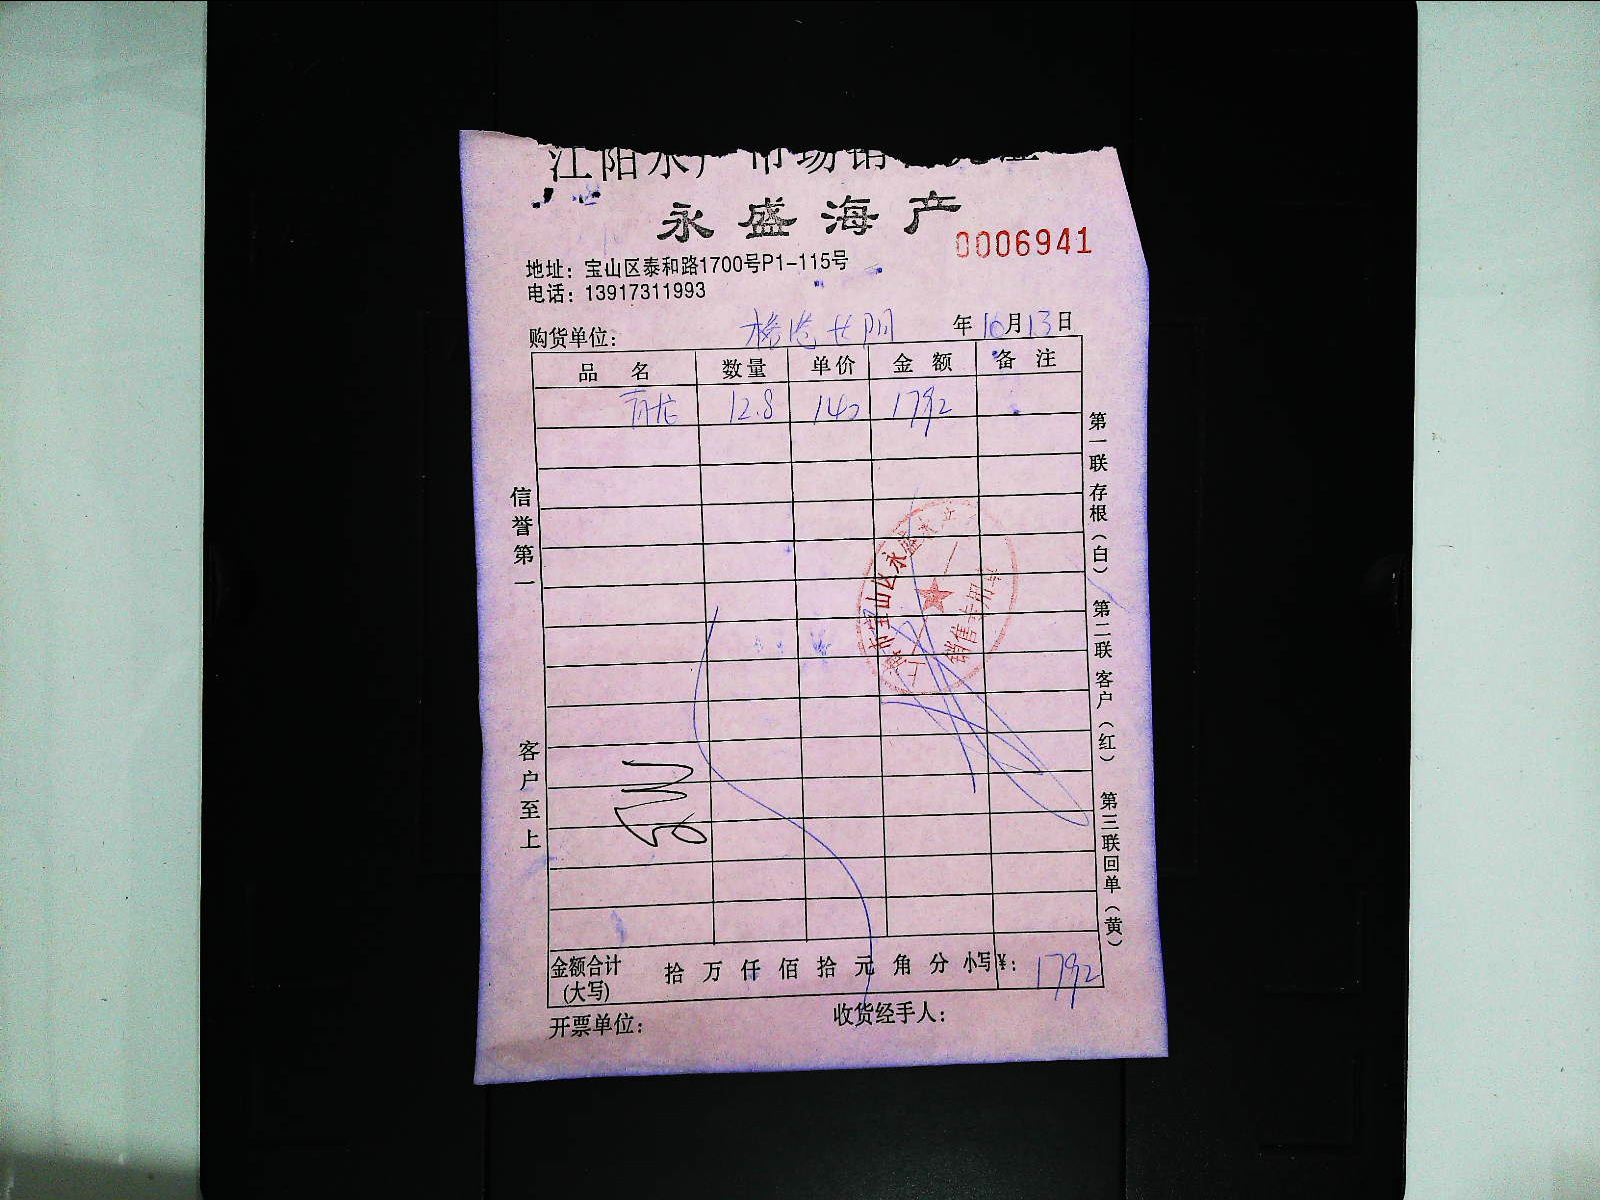 江阳水产市场销
永盛海产
0006941
地址：宝山区泰和路1700号P1-115号
电话：13917311993
购货单位： 年10月13日
品名 数量 单价 金额 备注
青龙 12.8 140 1792
信誉第一
客户至上
第一联 存根（白） 第二联 客户（红） 第三联 回单（黄）
上海市宝山区永盛水产
销售专用
金额合计(大写) 拾 万 仟 佰 拾 元 角 分 小写¥: 1792
开票单位： 收货经手人：